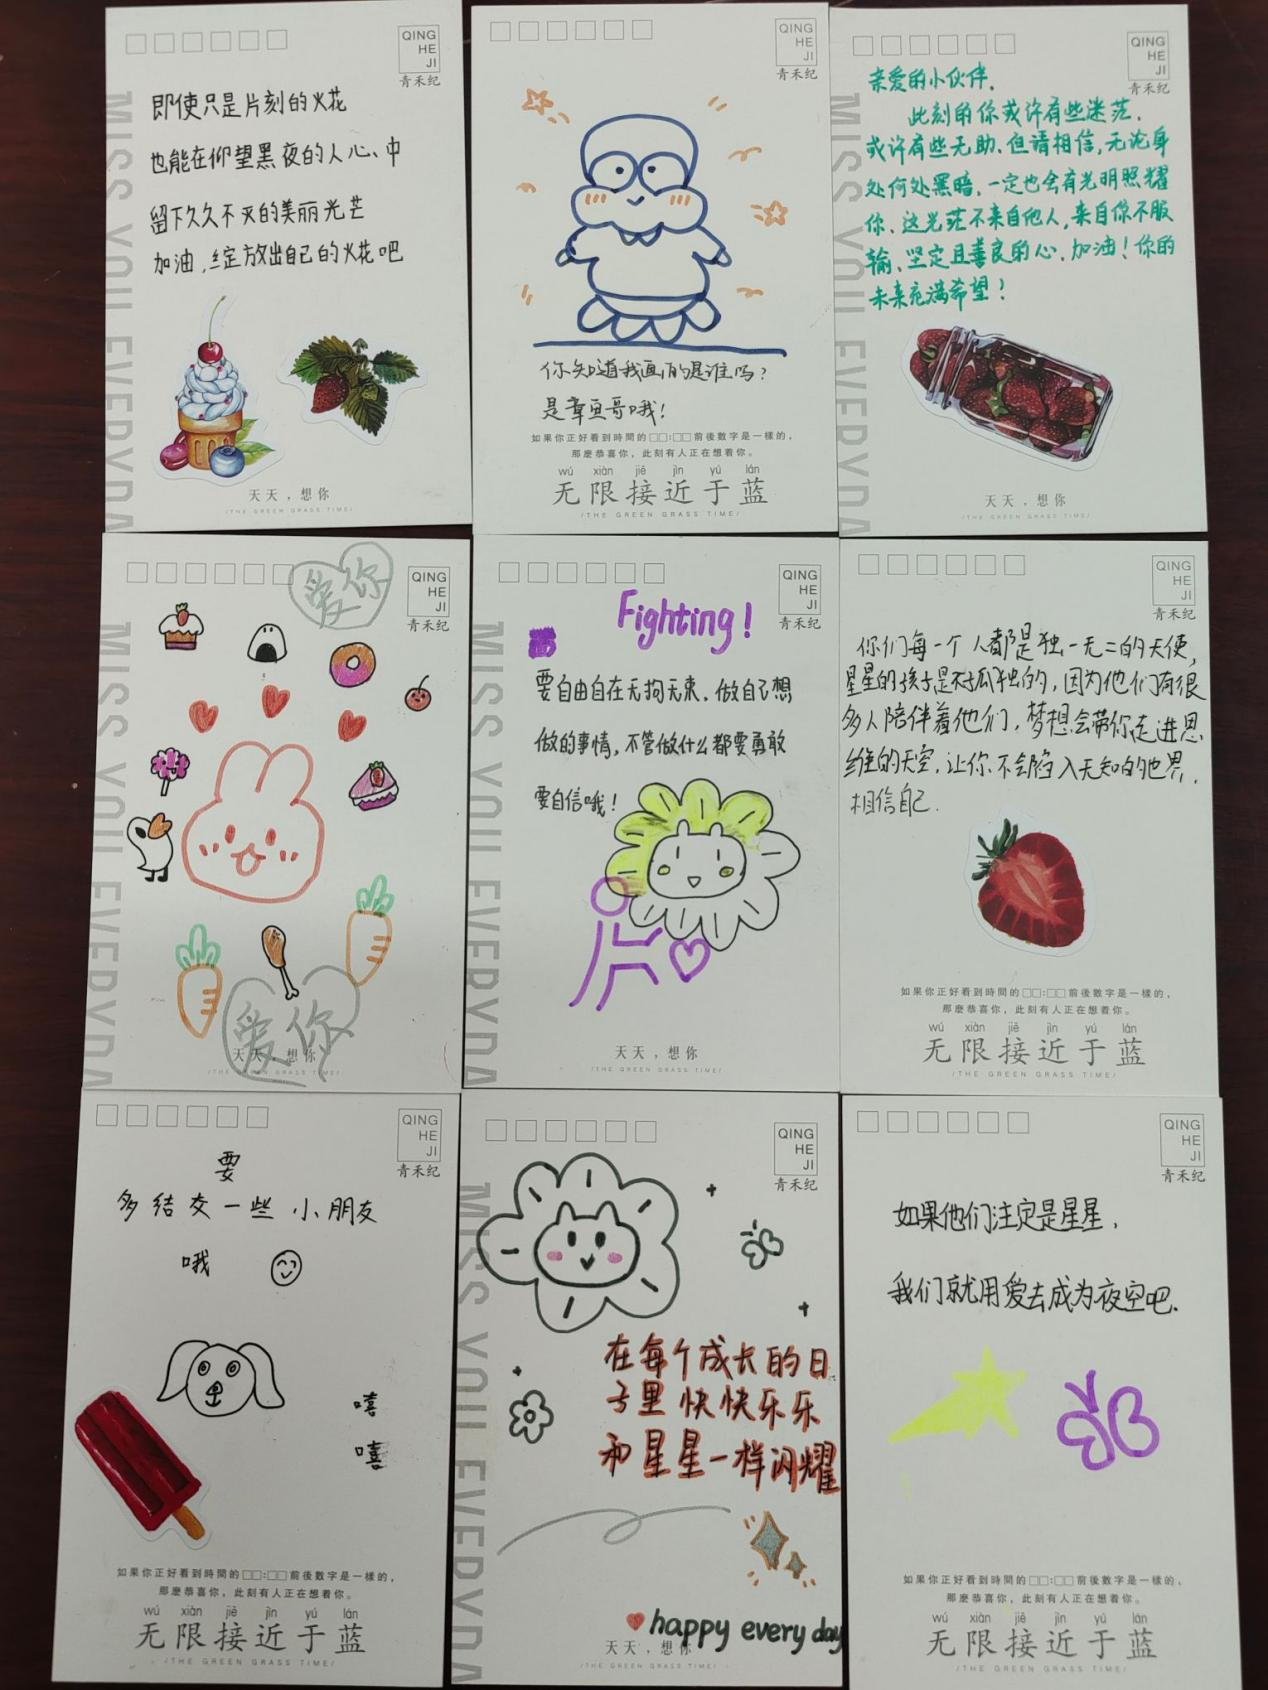 QING
HE
JI
青禾纪
MISS YOU EVERYDA
即使只是片刻的火花
也能在仰望黑夜的人心中
留下久久不灭的美丽光芒
加油,绽放出自己的火花吧
天天,想你
/THE GREEN GRASS TIME/
QING
HE
JI
青禾纪
你知道我画的是谁吗?
是章鱼哥哦!
如果你正好看到時間的□□:□□前後數字是一樣的,
那麽恭喜你,此刻有人正在想着你。
wú xiàn jiē jìn yú lán
无限接近于蓝
/THE GREEN GRASS TIME/
QING
HE
JI
青禾纪
MISS YOU EVERYDA
亲爱的小伙伴,
此刻的你或许有些迷茫,
或许有些无助、但请相信,无论身
处何处黑暗,一定也会有光明照耀
你、这光茫不来自他人,来自你不服
输、坚定且善良的心、加油!你的
未来充满希望!
天天,想你
/THE GREEN GRASS TIME/
QING
HE
JI
青禾纪
MISS YOU EVERYDA
爱你
爱你
天天,想你
/THE GREEN GRASS TIME/
QING
HE
JI
青禾纪
MISS YOU EVERYDA
Fighting!
要自由自在无拘无束,做自己想
做的事情,不管做什么都要勇敢
要自信哦!
天天,想你
/THE GREEN GRASS TIME/
QING
HE
JI
青禾纪
你们每一个人都是独一无二的天使,
星星的孩子是不孤独的,因为他们有很
多人陪伴着他们,梦想会带你走进思
维的天空,让你不会陷入无知的世界,
相信自己.
如果你正好看到時間的□□:□□前後數字是一樣的,
那麽恭喜你,此刻有人正在想着你。
wú xiàn jiē jìn yú lán
无限接近于蓝
/THE GREEN GRASS TIME/
QING
HE
JI
青禾纪
要
多结交一些小朋友
哦
嘻
嘻
如果你正好看到時間的□□:□□前後數字是一樣的,
那麽恭喜你,此刻有人正在想着你。
wú xiàn jiē jìn yú lán
无限接近于蓝
/THE GREEN GRASS TIME/
QING
HE
JI
青禾纪
MISS YOU EVERYDA
在每个成长的日
子里快快乐乐
和星星一样闪耀
happy every day
天天,想你
/THE GREEN GRASS TIME/
QING
HE
JI
青禾纪
如果他们注定是星星,
我们就用爱去成为夜空吧.
如果你正好看到時間的□□:□□前後數字是一樣的,
那麽恭喜你,此刻有人正在想着你。
wú xiàn jiē jìn yú lán
无限接近于蓝
/THE GREEN GRASS TIME/